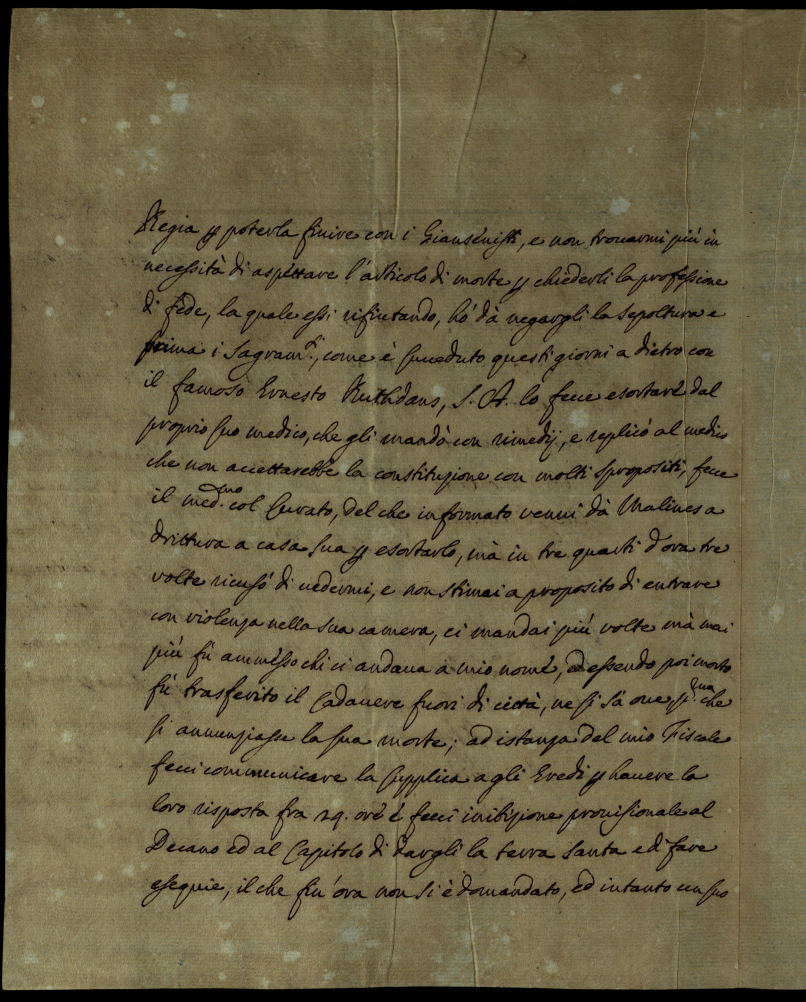 Regia p poterla finire con i Giansenisti, e non trovarmi più in
necessità di aspettare l'articolo di morte p chiederli la professione
di fede, la quale essi rifiutando, hò dà negargli la sepoltura e
prima i Sagram.ti, come è succeduto questi giorni a dietro con
il famoso Ernesto Ruthdans, S. A. lo fece esortare dal
proprio suo medico, che gli mandò con rimedij, e replicò al medico
che non accettarebbe la constituzione con molti spropositi, fece
il med.mo col Curato, del che informato venni dà Malines a
drittura a casa sua p esortarlo, mà in tre quarti d'ora tre
volte ricusò di vedermi, e non stimai a proposito di entrare
con violenza nella sua camera, ci mandai più volte mà mai
più fù ammesso chi ci andava a mio nome, ed essendo poi morto
fù trasferito il Cadavere fuori di città, ne si sà ove, che
si annunziasse la sua morte; ad istanza del mio Fiscale
feci communicare la supplica a gli Eredi p havere la
loro risposta fra 24. ore è feci inibizione provisionale al
Decano ed al Capitolo di dargli la terra santa e di fare
esequie, il che fin'ora non si è domandato, ed intanto un suo